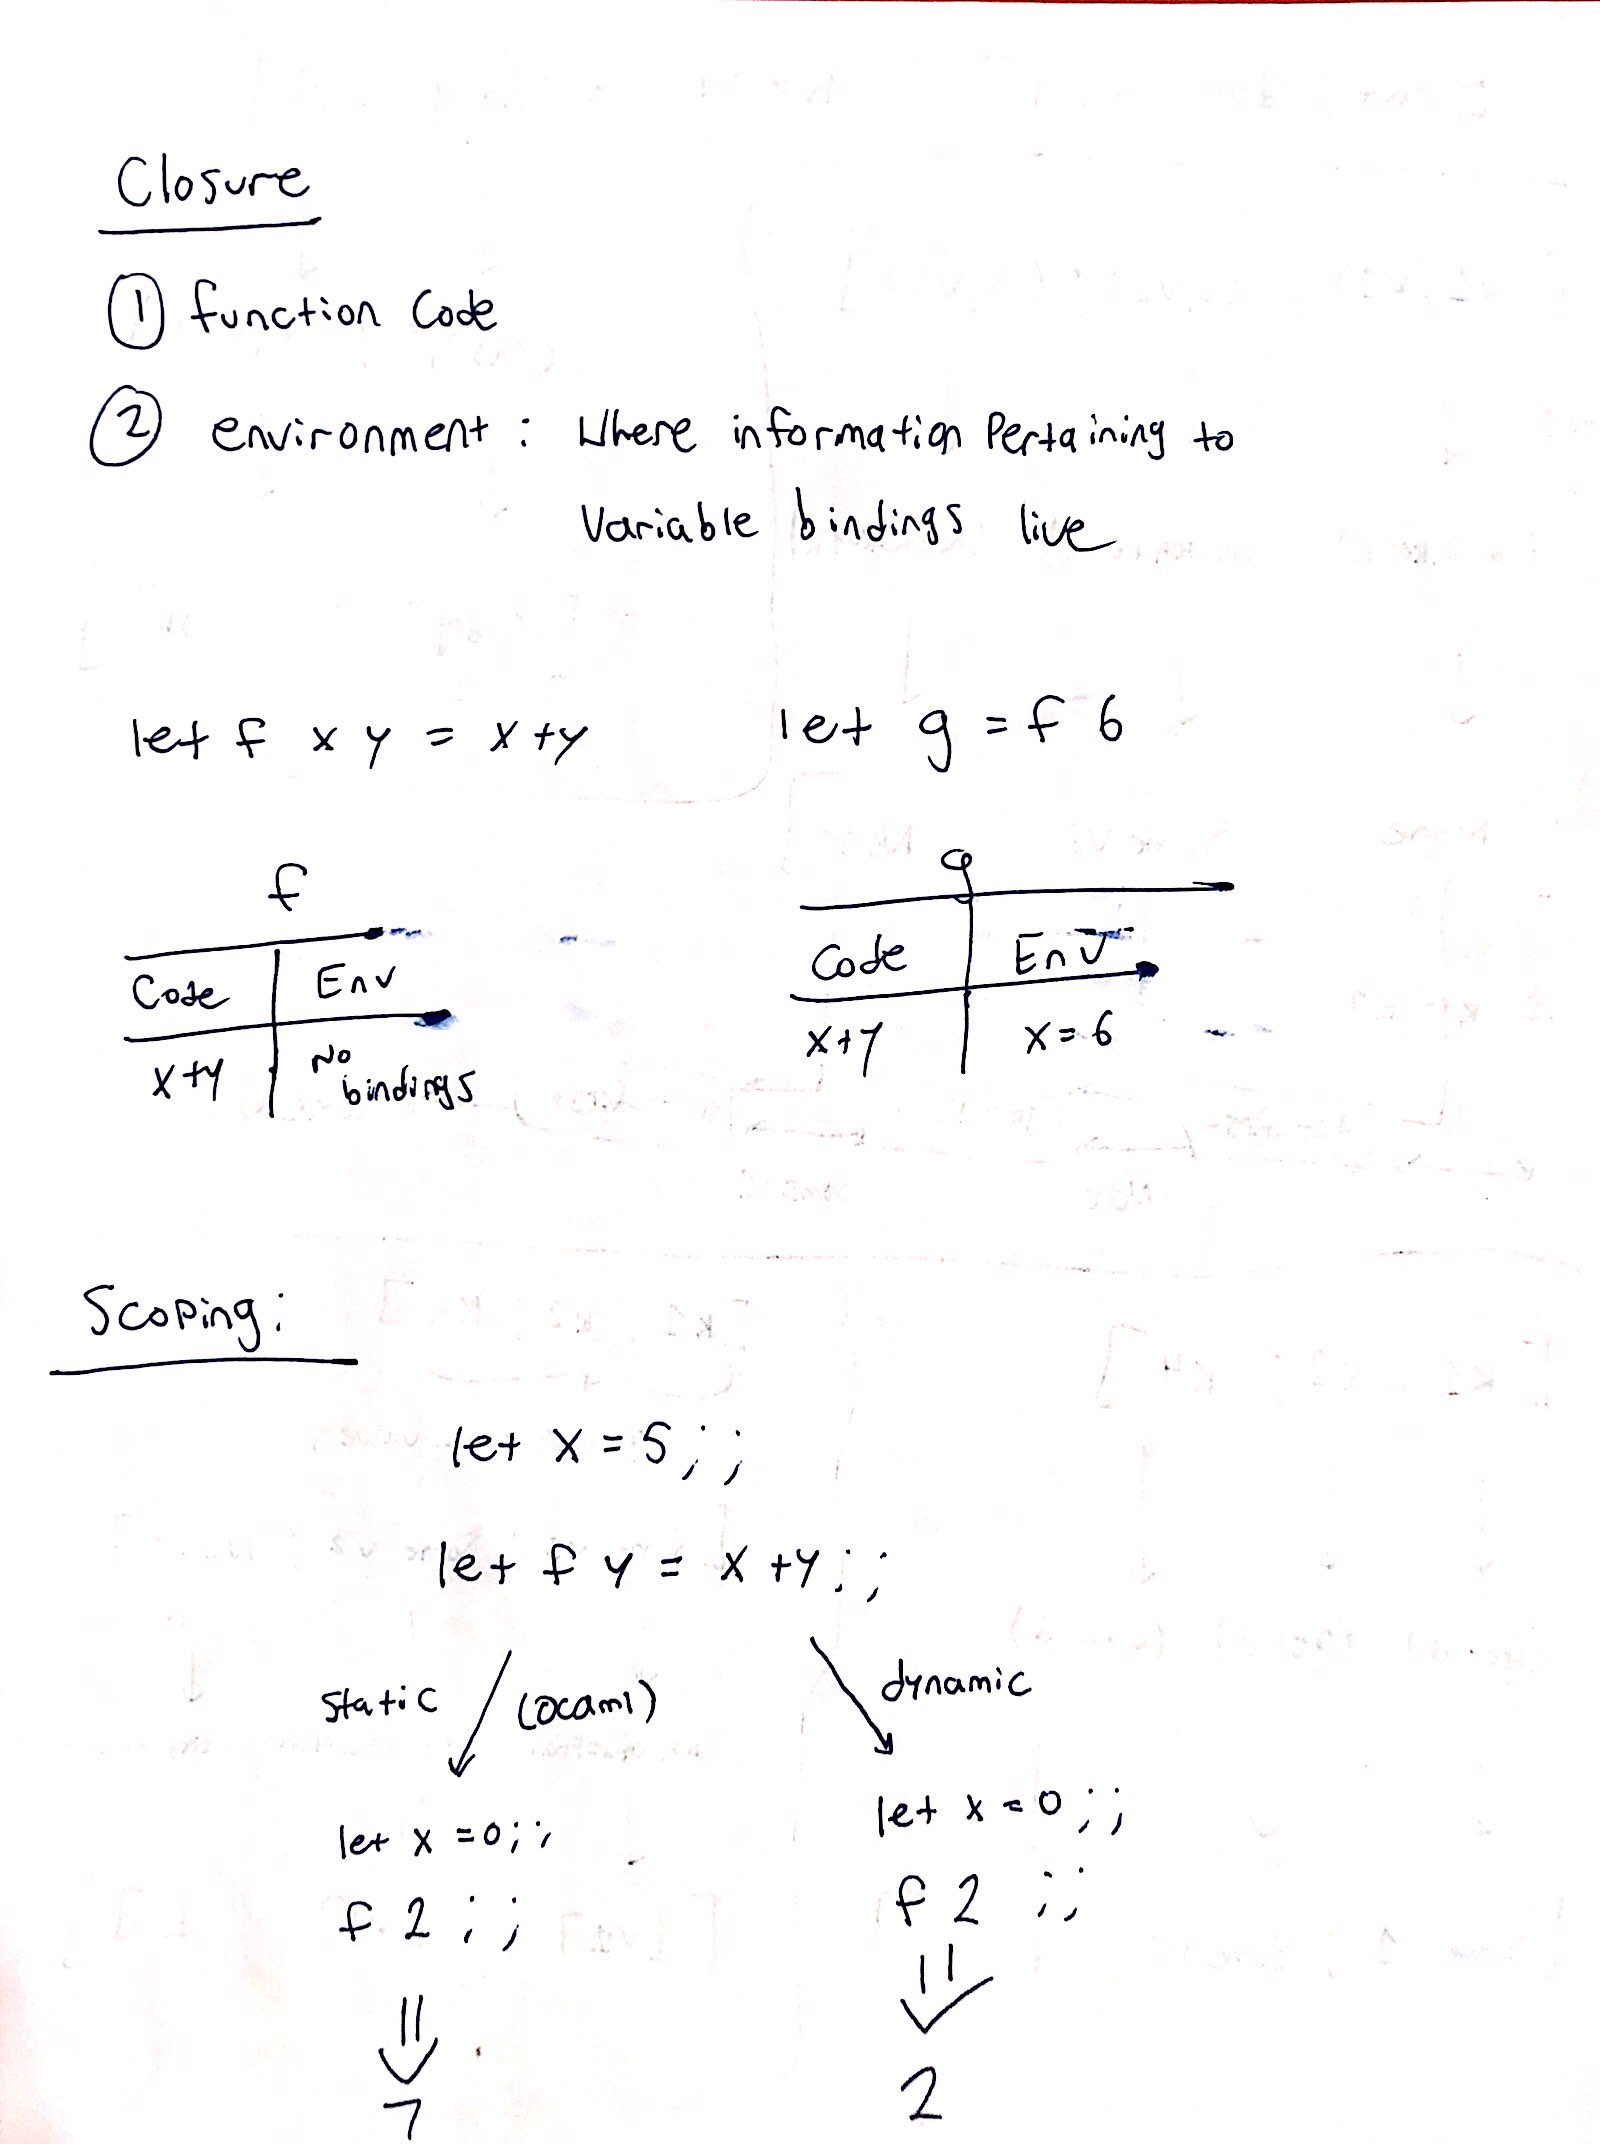 Closure
① function Code
② environment : Where information Pertaining to
Variable bindings live
let f x y = x+y
let g = f 6
f
Code Env
x+y No bindings
g
Code Env
x+y x=6
Scoping:
let x = 5;;
let f y = x+y;;
static (ocaml)
dynamic
let x = 0;;
f 2 ;;
7
let x = 0;;
f 2 ;;
2